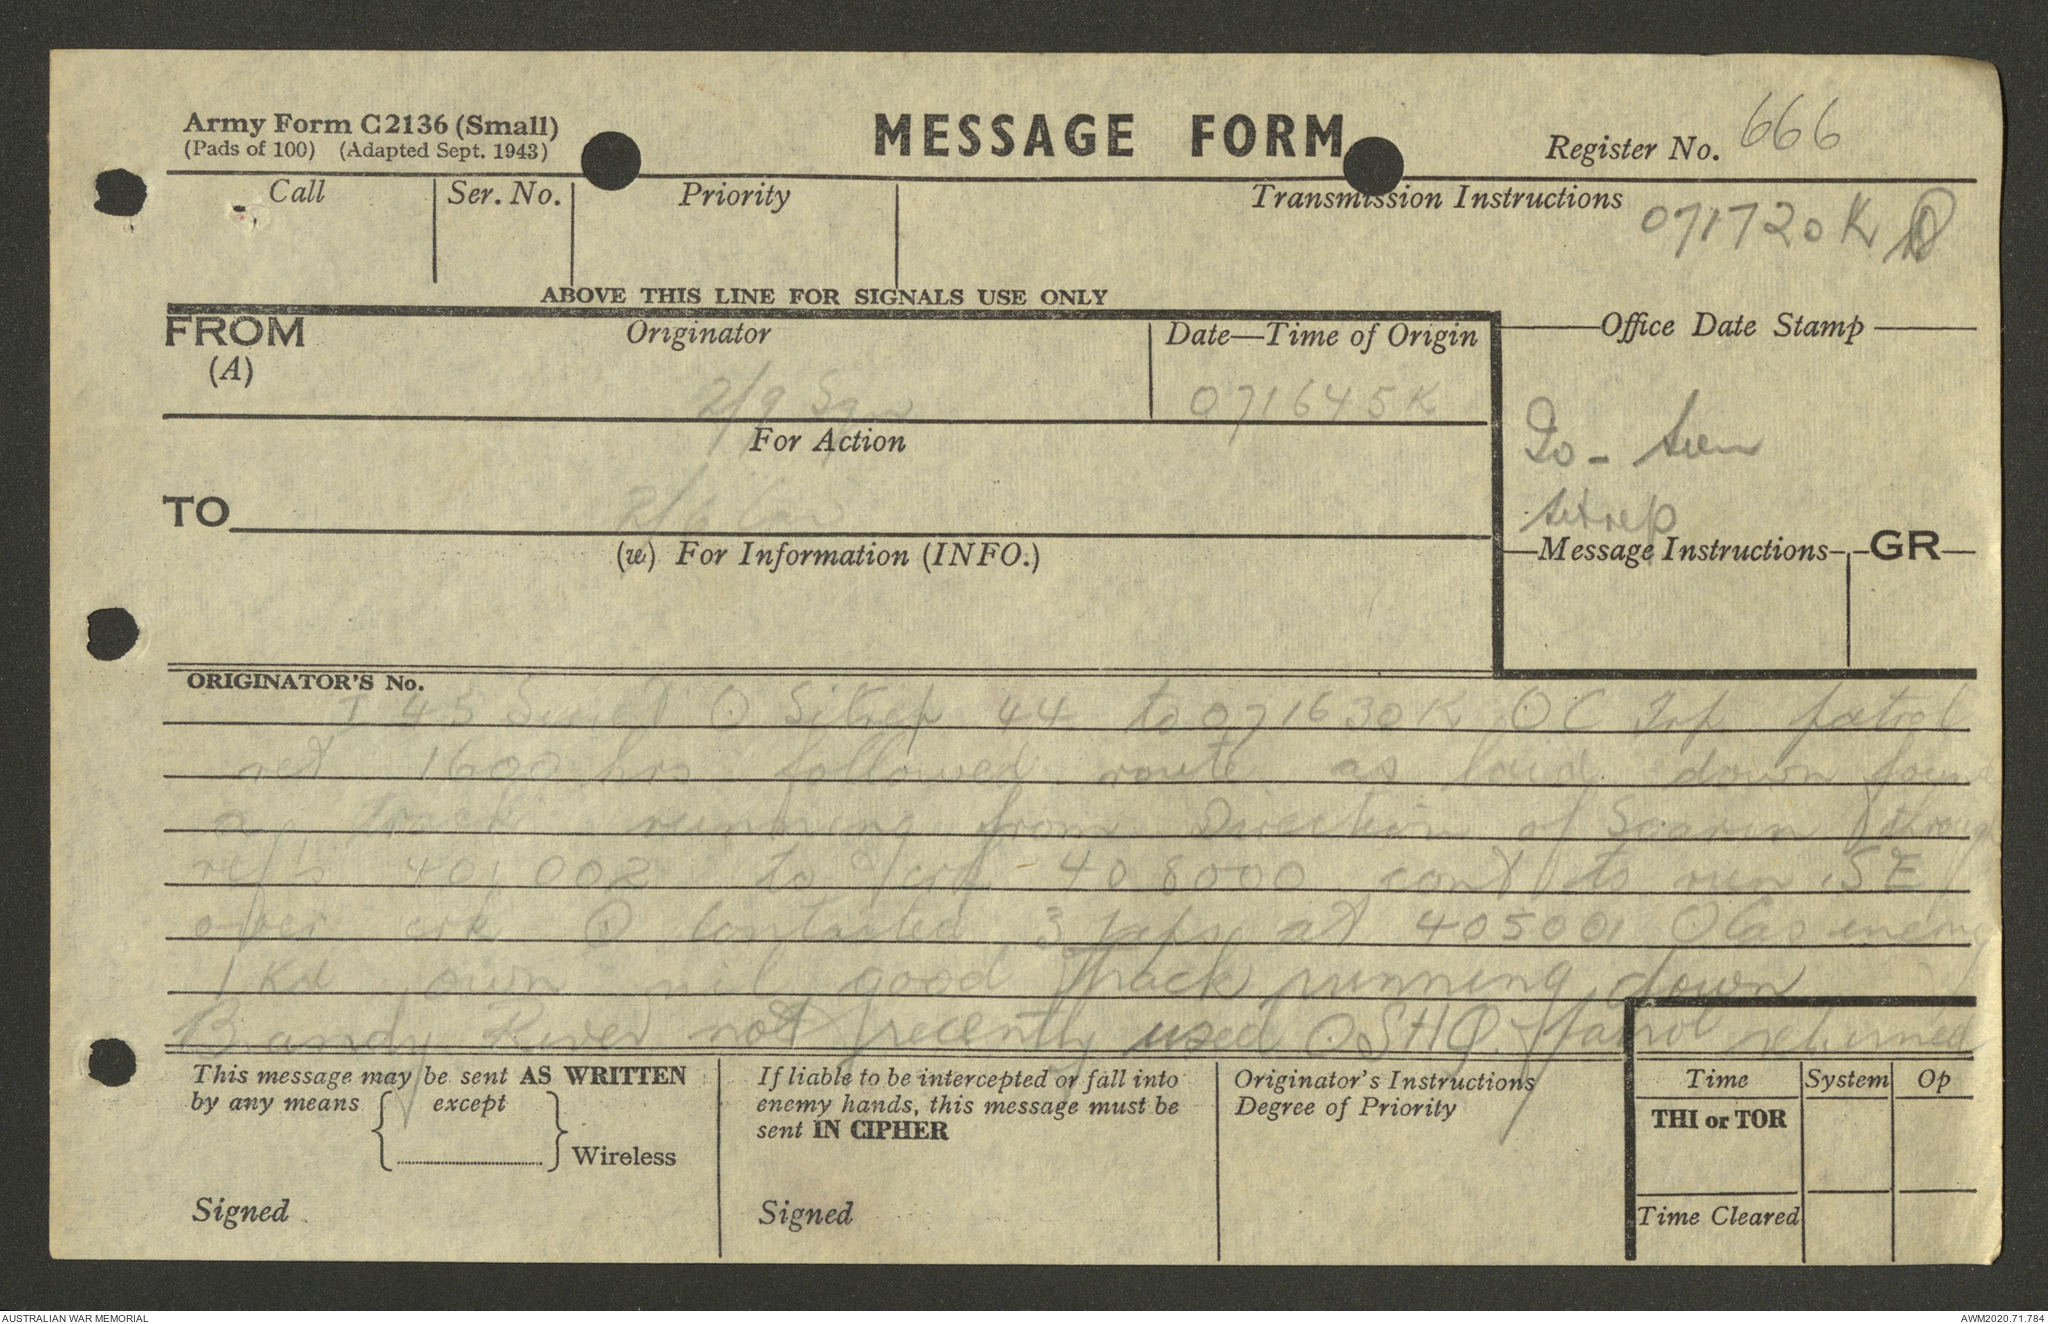 Army Form C2136 (Small)
(Pads of 100) (Adapted Sept. 1943)
MESSAGE FORM
Register No. 666
Call
Ser. No.
Priority
Transmission Instructions
071720K
ABOVE THIS LINE FOR SIGNALS USE ONLY
FROM
(A)
Originator
2/9 Sqn
Date—Time of Origin
071645K
Office Date Stamp
For Action
TO
2/6 Cav
Io - seen
sitrep
(w) For Information (INFO.)
Message Instructions
GR
ORIGINATOR'S No.
I 45 O Sitrep 44 to 071630K O C Trp patrol
ret 1600 hrs followed route as laid down found
a track running from Direction of through
ref's 401002 to crk 408000 cont to run SE
over crk O Contacted 3 Japs at 405001 O Cas enemy
1 Kd own nil good track running down
Bandy River not recently used O SHQ patrol returned
This message may be sent AS WRITTEN
by any means { except } Wireless
Signed
If liable to be intercepted or fall into
enemy hands, this message must be
sent IN CIPHER
Signed
Originator's Instructions
Degree of Priority
Time
System
Op
THI or TOR
Time Cleared
AUSTRALIAN WAR MEMORIAL
AWM2020.71.784